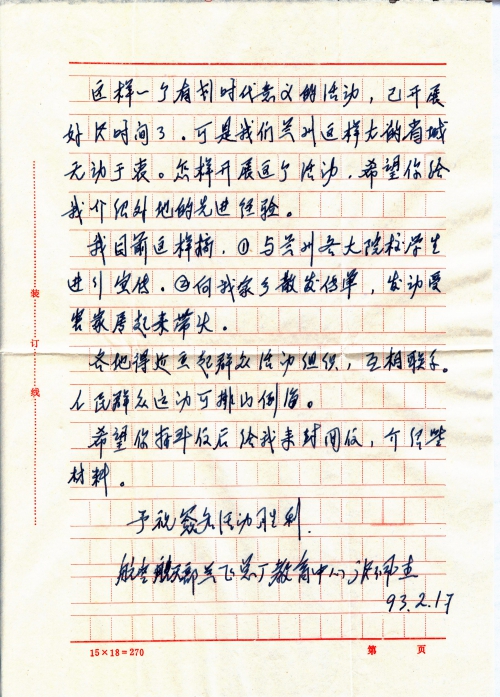 这样一个有划时代意义的活动，已开展
好些时间了。可是我们兰州这样大的省城
无动于衷。怎样开展这个活动，希望你给
我介绍外地的先进经验。
我目前这样搞，①与兰州各大院校学生
进行宣传。②向我家乡散发传单，发动受
害家属起来带头。
各地得建立起群众活动组织，互相联系。
人民群众运动可排山倒海。
希望你接到信后给我来封回信，介绍些
材料。
予祝签名活动胜利.
航空航天部兰飞总厂教育中心
93.2.17
装
订
线
15×18=270
第 页